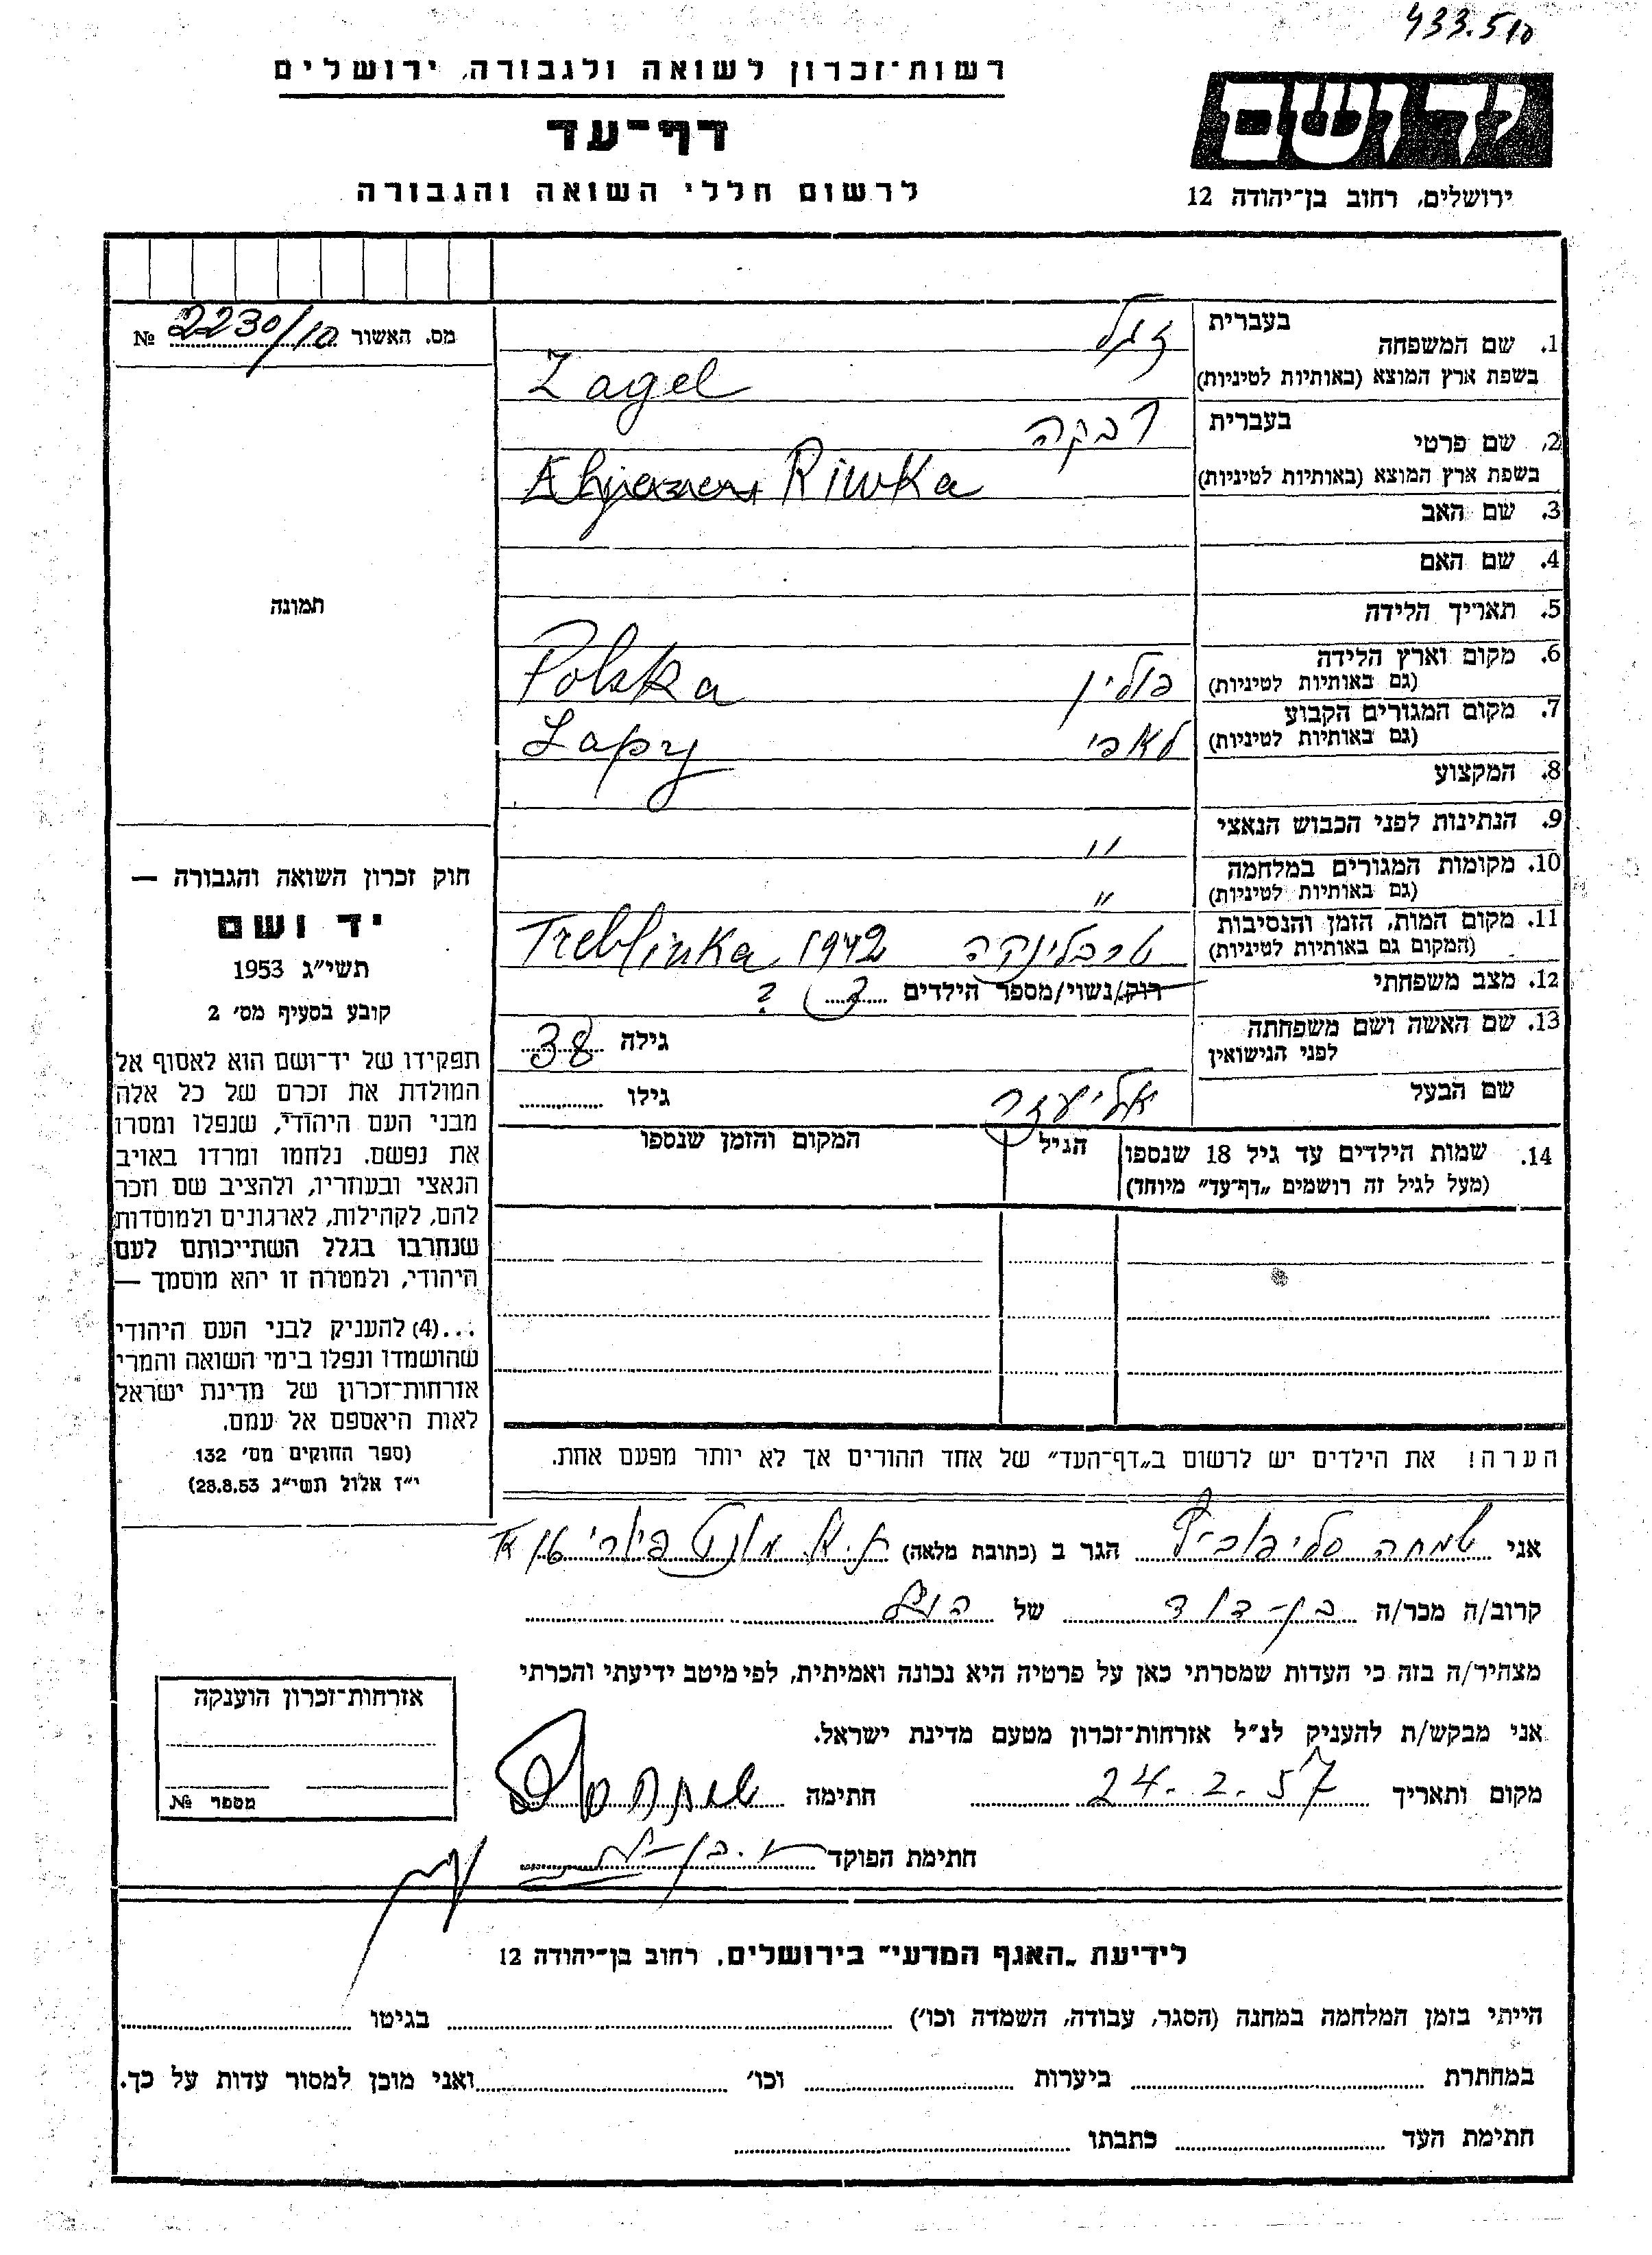 433.510
רשות־זכרון לשואה ולגבורה, ירושלים
דף־עד
לרשום חללי השואה והגבורה
יד ושם
ירושלים, רחוב בן־יהודה 12
מס. האשור 2230/10 №
תמונה
חוק זכרון השואה והגבורה —
יד ושם
תשי״ג 1953
קובע בסעיף מס׳ 2
תפקידו של יד־ושם הוא לאסוף אל
המולדת את זכרם של כל אלה
מבני העם היהודי, שנפלו ומסרו
את נפשם, נלחמו ומרדו באויב
הנאצי ובעוזריו, ולהציב שם וזכר
להם, לקהילות, לארגונים ולמוסדות
שנחרבו בגלל השתייכותם לעם
היהודי, ולמטרה זו יהא מוסמך —
...(4) להעניק לבני העם היהודי
שהושמדו ונפלו בימי השואה והמרי
אזרחות־זכרון של מדינת ישראל
לאות היאספם אל עמם.
(ספר החוקים מס׳ 132
י״ז אלול תשי״ג 28.8.53)
1. שם המשפחה בעברית זגל
בשפת ארץ המוצא (באותיות לטיניות) Zagel
2. שם פרטי בעברית רבקה
בשפת ארץ המוצא (באותיות לטיניות) Riwka
3. שם האב
4. שם האם
5. תאריך הלידה
6. מקום וארץ הלידה פולין Polska
(גם באותיות לטיניות)
7. מקום המגורים הקבוע לאפי Lapy
(גם באותיות לטיניות)
8. המקצוע
9. הנתינות לפני הכבוש הנאצי "
10. מקומות המגורים במלחמה "
(גם באותיות לטיניות)
11. מקום המות, הזמן והנסיבות טרבלינקה 1942 Treblinka
(המקום גם באותיות לטיניות)
12. מצב משפחתי רווק/נשוי/מספר הילדים ?
13. שם האשה ושם משפחתה גילה 38
לפני הנישואין
שם הבעל אליעזר גילו
14. שמות הילדים עד גיל 18 שנספו הגיל המקום והזמן שנספו
(מעל לגיל זה רושמים „דף־עד״ מיוחד)
הערה! את הילדים יש לרשום ב„דף־העד״ של אחד ההורים אך לא יותר מפעם אחת.
אני שמחה הגר ב (כתובת מלאה) ת.א. מונטיפיורי
קרוב/ה מכר/ה בן-דוד של הנ״ל
מצהיר/ה בזה כי העדות שמסרתי כאן על פרטיה היא נכונה ואמיתית, לפי מיטב ידיעתי והכרתי
אני מבקש/ת להעניק לנ״ל אזרחות־זכרון מטעם מדינת ישראל.
מקום ותאריך 24.2.57 חתימה שמחה
חתימת הפוקד
אזרחות־זכרון הוענקה
מספר №
לידיעת „האגף המדעי״ בירושלים, רחוב בן־יהודה 12
הייתי בזמן המלחמה במחנה (הסגר, עבודה, השמדה וכו׳) בגיטו
במחתרת ביערות וכו׳ ואני מוכן למסור עדות על כך.
חתימת העד כתבתו